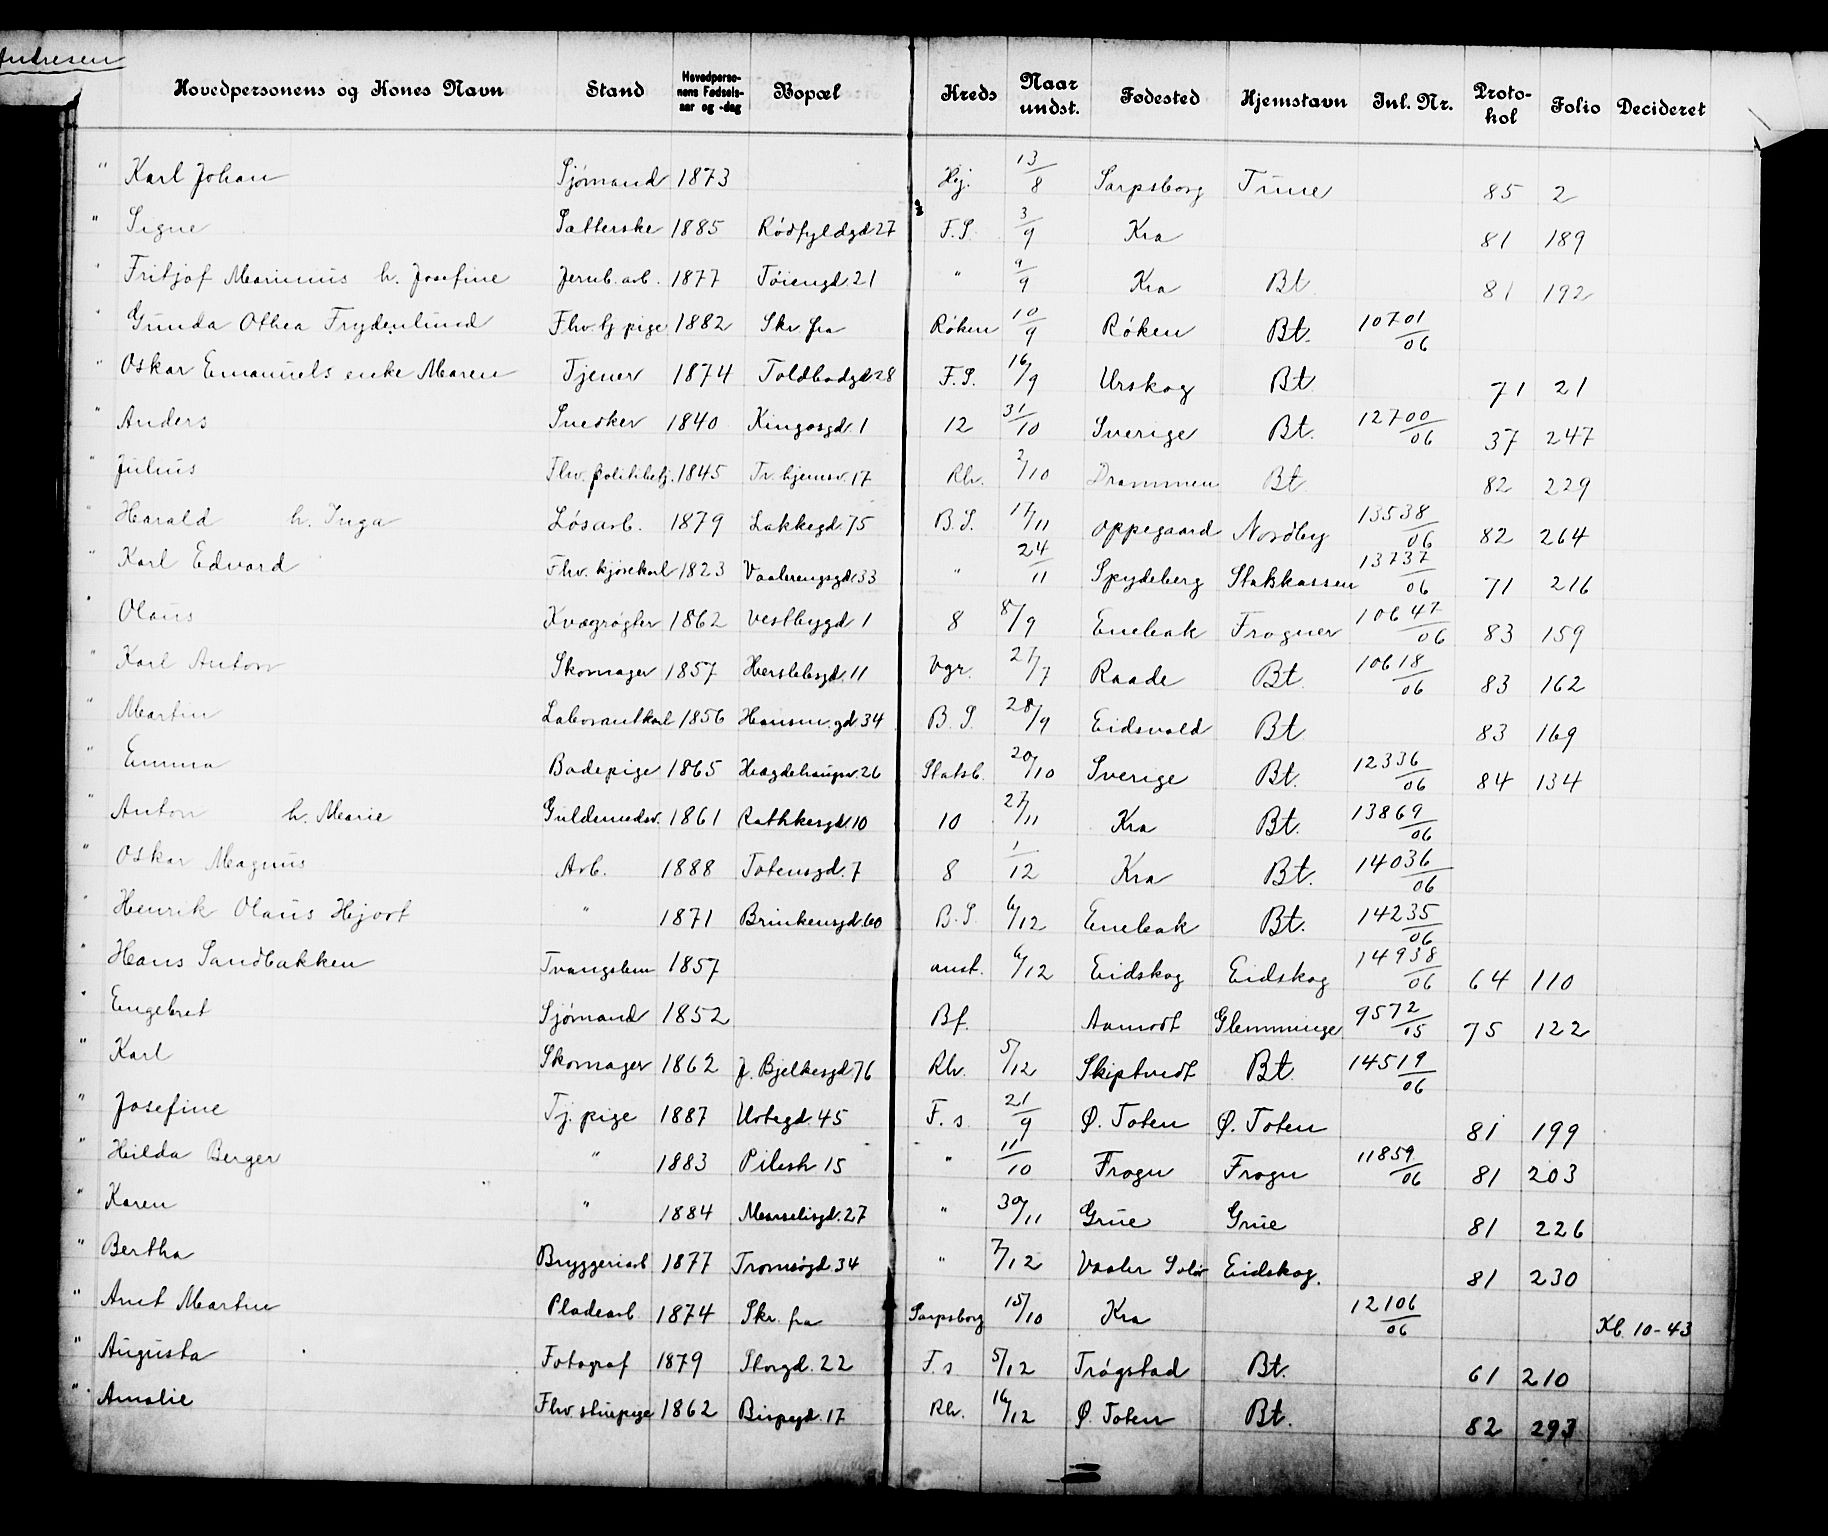 Andresen
Hovedpersonens og Kones Navn Stand Hovedperso-nens Fødsels-aar og -dag Bopæl Kreds Naar undst. Fødested Hjemstavn Inl. Nr. Proto-kol Folio Decideret
" Karl Johan Sjømand 1873 Hj. 13/8 Sarpsborg Tune 85 2
" Signe Satterske 1885 Rødfyldgd 27 F.S. 3/9 Kra 81 189
" Fritjof Marinius h. Josefine Jernb. arb. 1877 Tøiengd. 21 " 9/9 Kra Bt 81 192
" Gunda Othea Frydenlund Fhv. tj. pige 1882 Skr. fra Røken 10/9 Røken Bt. 10701/06
" Oskar Emanuels enke Maren Tjener 1874 Toldbodgd 28 F.S. 16/9 Urskog Bt 71 21
" Anders Snedker 1840 Kingosgd. 1 12 31/10 Sverige Bt. 12700/06 37 247
" Julius Fhv. politibetj. 1845 Tv. hjemsv. 17 Rh. 2/10 Drammen Bt. 82 229
" Harald h. Inga Løsarb. 1879 Lakkegd. 75 B.S. 17/11 Oppegaard Nordby 13538/06 82 264
" Karl Edvard Fhv. kjørekarl 1823 Vaalerengsgd. 33 " 24/11 Spydeberg Statskassen 13737/06 71 216
" Olaus Kvægrøgter 1862 Vestbygd 1 8 8/9 Enebak Frogner 10647/06 83 159
" Karl Anton Skomager 1857 Herslebsgd. 11 Vgr. 27/7 Raade Bt. 10618/06 83 162
" Martin Laborantkarl 1856 Hansm. gd 34 B.S. 28/9 Eidsvold Bt 83 169
" Emma Badepige 1865 Hægdehaugsv. 26 Statsb. 20/10 Sverige Bt. 12336/06 84 134
" Anton h. Marie Guldsmedsv. 1861 Rathkesgd. 10 10 27/11 Kra Bt. 13869/06
" Oskar Magnus Arb. 1888 Totensgd. 7 8 1/12 Kra Bt. 14036/06
" Henrik Olaus Hjort " 1871 Brinkensgd. 60 B.S. 6/12 Enebak Bt. 14235/06
" Hans Sandbakken Tvangslem 1857 anst. 6/12 Eidskog Eidskog 14938/06 64 110
" Engebret Sjømand 1852 Bf. Aamodt Glemminge 9572/05 75 122
" Karl Skomager 1862 J. Bjelkesgd 76 Rh. 5/12 Skiptvedt Bt. 14519/06
" Josefine Tj. pige 1887 Urtegd. 45 F.s. 21/9 Ø. Toten Ø. Toten 81 199
" Hilda Berger " 1883 Pilestr 15 " 11/10 Frogn Frogn 11859/06 81 203
" Karen " 1884 Marselisgd. 27 " 30/11 Grue Grue 81 226
" Bertha Bryggeriarb 1877 Tromsøgd. 34 " 7/12 Vaaler Solør Eidskog. 81 230
" Arnt Martin Pladearb 1874 Skr. fra Sarpsborg 15/10 Kra 12106/06 Kb. 10-43
" Augusta Fotograf 1879 Storgd. 22 F.s. 5/12 Trøgstad Bt. 61 210
" Amalie Fhv. stuepige 1862 Bispegd. 17 Rh. 16/12 Ø. Toten Bt. 82 293